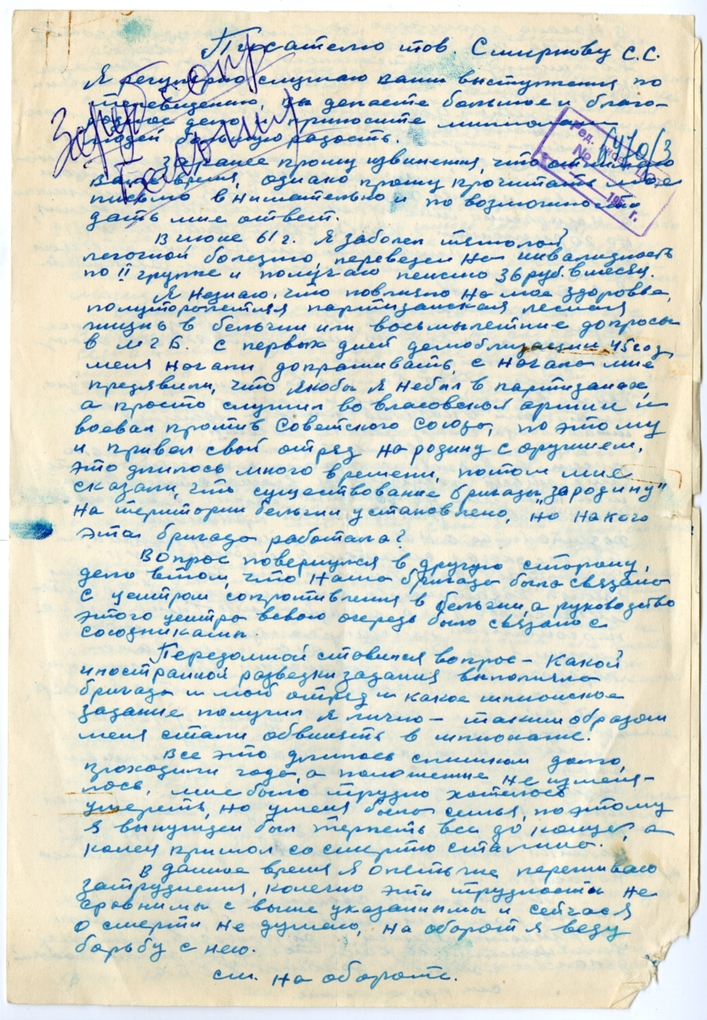 Писателю тов. Смирнову С.С.
Я регулярно слушаю ваши выступления по
телевидению, вы делаете большое и благо-
родное дело, приносите
людей большую радость.
Заранее прошу извинения, что отнимаю
Ваше время, однако прошу прочитать мое
письмо внимательно и по возможности
дать мне ответ.
В июне 61 г. я заболел тяжолой
легочной болезню, переведен на инвалидность
по II групе и получаю пенсию 36 руб. в месяц.
Я незнаю, что повлияно на мое здоровье,
полуторолетняя партизанская лесная
жизнь в бельгии или восьмылетние допросы
в МГБ. С первых дней демоблизации 45 год
меня начали допрашивать, с начала мне
предявили, что якобы я небыл в партизанах,
а просто служил во власовской армии и
воевал против Советского Союза, по этому
и привел свой отряд на родину с оружием,
это длилось много времени, потом мне
сказали, что существование бригады "За родину"
на територии бельгии установлено, но на кого
эта бригада работала?
Вопрос повернулся в другую сторону,
дело втом, что наша бригада была связана
с центром сопротивления в бельгии, а руководство
этого центра всвою очередь было связано с
союзниками.
Передомной ставился вопрос - какой
иностранной разведки задания выполняла
бригада и мой отряд и какое шпионское
задание получил я лично - таким образом
меня стали обвинять в шпионаже.
Все это длилось слишком долго,
проходили года, а положение не изменя-
лось, мне было трудно хотелося
умереть, но уменя была семья, поэтому
я вынужден был терпеть все до конца, а
конец пришол со смертю сталина.
В данное время я опять же переживаю
затруднения, конечно эти трудности не
сравнимы с выше указанными и сейчас я
о смерти не думаю, на оборот я веду
борьбу с нею.
см. на обороте.
6470/3
Ред.
№
196 г.